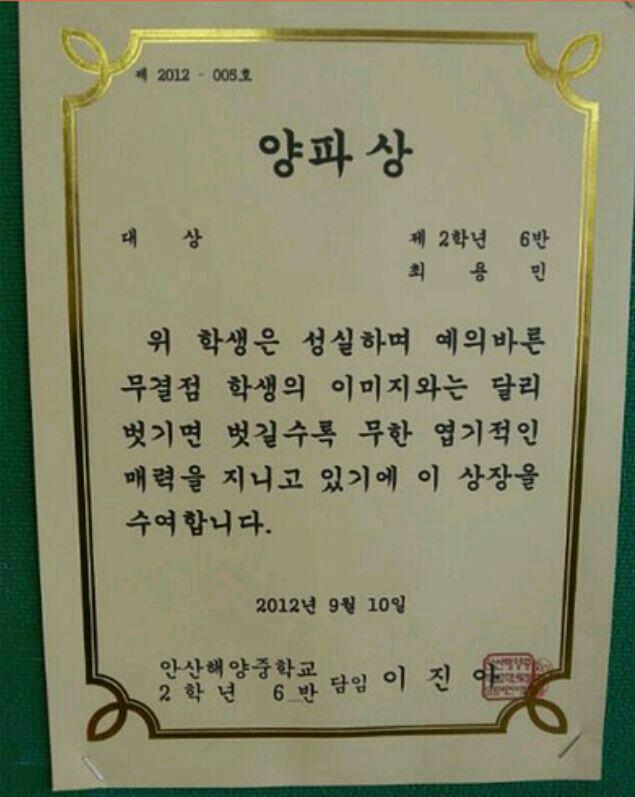 제 2012 - 005호
양파 상
대 상
제 2학년 6반
최 용 민
위 학생은 성실하며 예의바른
무결점 학생의 이미지와는 달리
벗기면 벗길수록 무한 엽기적인
매력을 지니고 있기에 이 상장을
수여합니다.
2012년 9월 10일
안산해양중학교
2 학 년 6 반 담임 이 진 아